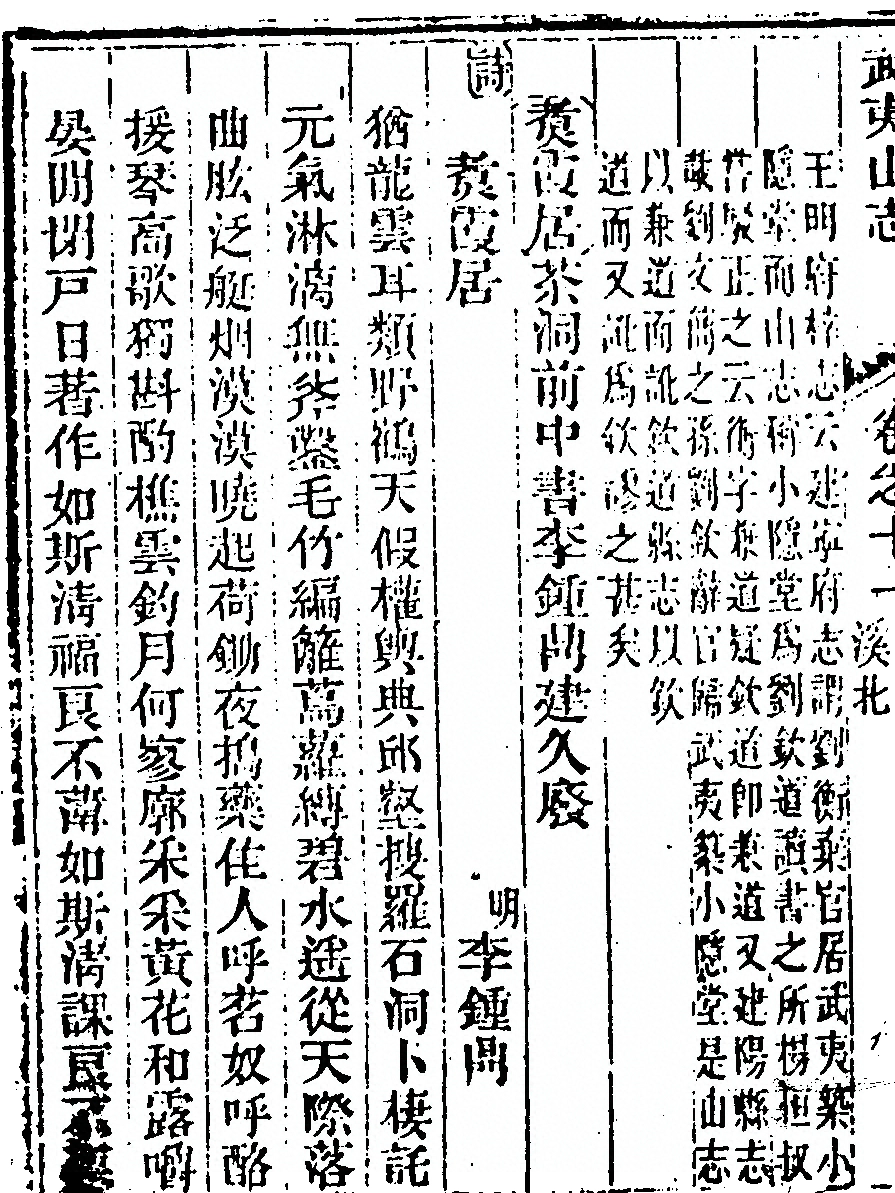 武夷山志 卷之十一 溪北
王明府梓志云建寧府志謂劉衡棄官居武夷築小
隱堂而山志稱小隱堂爲劉欽道讀書之所榜扭扠
皆駁正之云衡字兼道疑欽道卽兼道又建陽縣志
載劉文簡之孫劉欽辭官歸武夷築小隱堂是山志
以兼道而訛欽道縣志以欽
道而又訛爲欽謬之甚矣
霞居茶洞前中書李鍾鼎建久廢
詩
霞居 明李鍾鼎
猶龍雲耳類野鶴天假權輿典邱壑搜羅石洞卜棲託
元氣淋漓無斧鑿毛竹編籬蔦蘿縛碧水遥從天際落
曲肱泛艇烟漠漠曉起荷鋤夜搗藥佳人呼茗奴呼酪
援琴高歌獨斟酌樵雲釣月何寥廓采采黃花和露嚼
晏開閉戸日著作如斯清福良不薄如斯清課良不